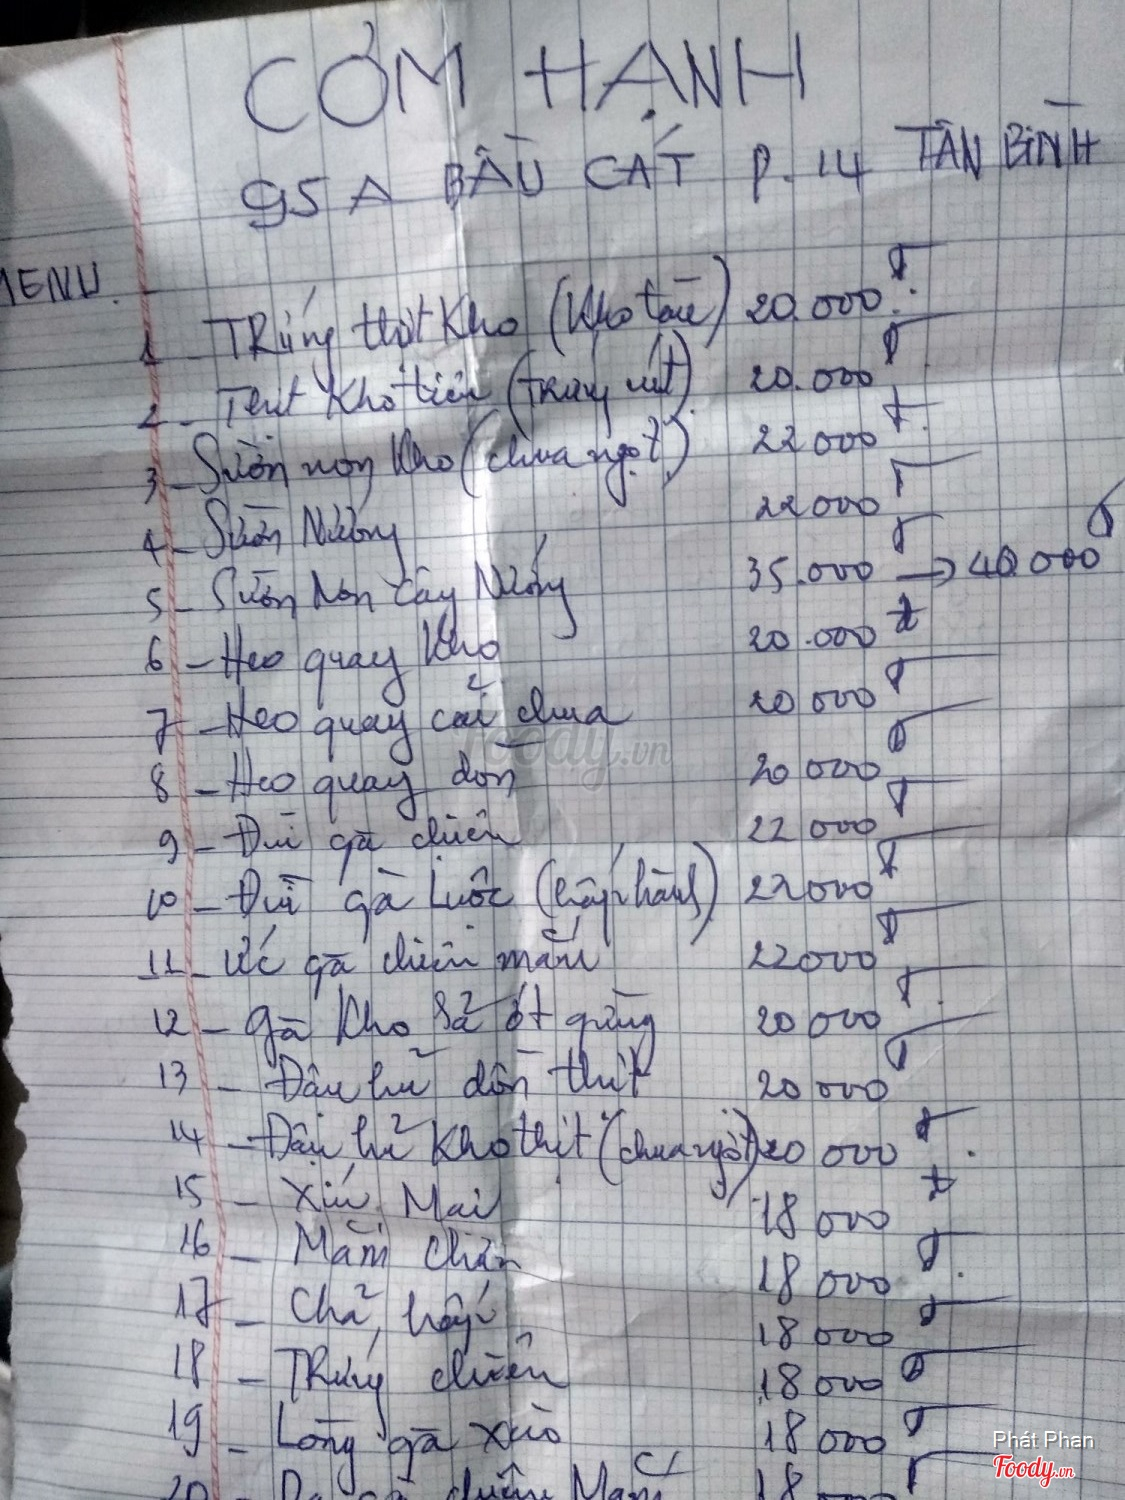 CƠM HẠNH
95A BÀU CÁT P.14 TÂN BÌNH
MENU.
1 - TRứng thịt Kho (Kho tàu) 20.000đ
2 - Thịt Kho tiêu (Trứng vịt) 20.000đ
3 - Sườn non Kho (chua ngọt) 22000đ
4 - Sườn Nướng 22000đ
5 - Sườn Non Cây Nướng 35.000đ → 40.000đ
6 - Heo quay Kho 20.000đ
7 - Heo quay cải chua 20 000đ
8 - Heo quay dòn 20 000đ
9 - Đùi gà chiên 22 000đ
10 - Đùi gà Luộc (hấp hành) 22000đ
11 - Ức gà chiên mắm 22000đ
12 - gà Kho Sả ớt gừng 20 000đ
13 - Đậu hủ dồn thịt 20 000đ
14 - Đậu hủ Kho thịt (chua ngọt) 20 000đ
15 - Xíu Mại 18 000đ
16 - Mắm chưn 18 000đ
17 - Chả hấp 18 000đ
18 - TRứng chiên 18 000đ
19 - Lòng gà xào 18 000đ
20 - Da gà chiên Mắm 18
foody.vn
Phát Phan
Foody.vn